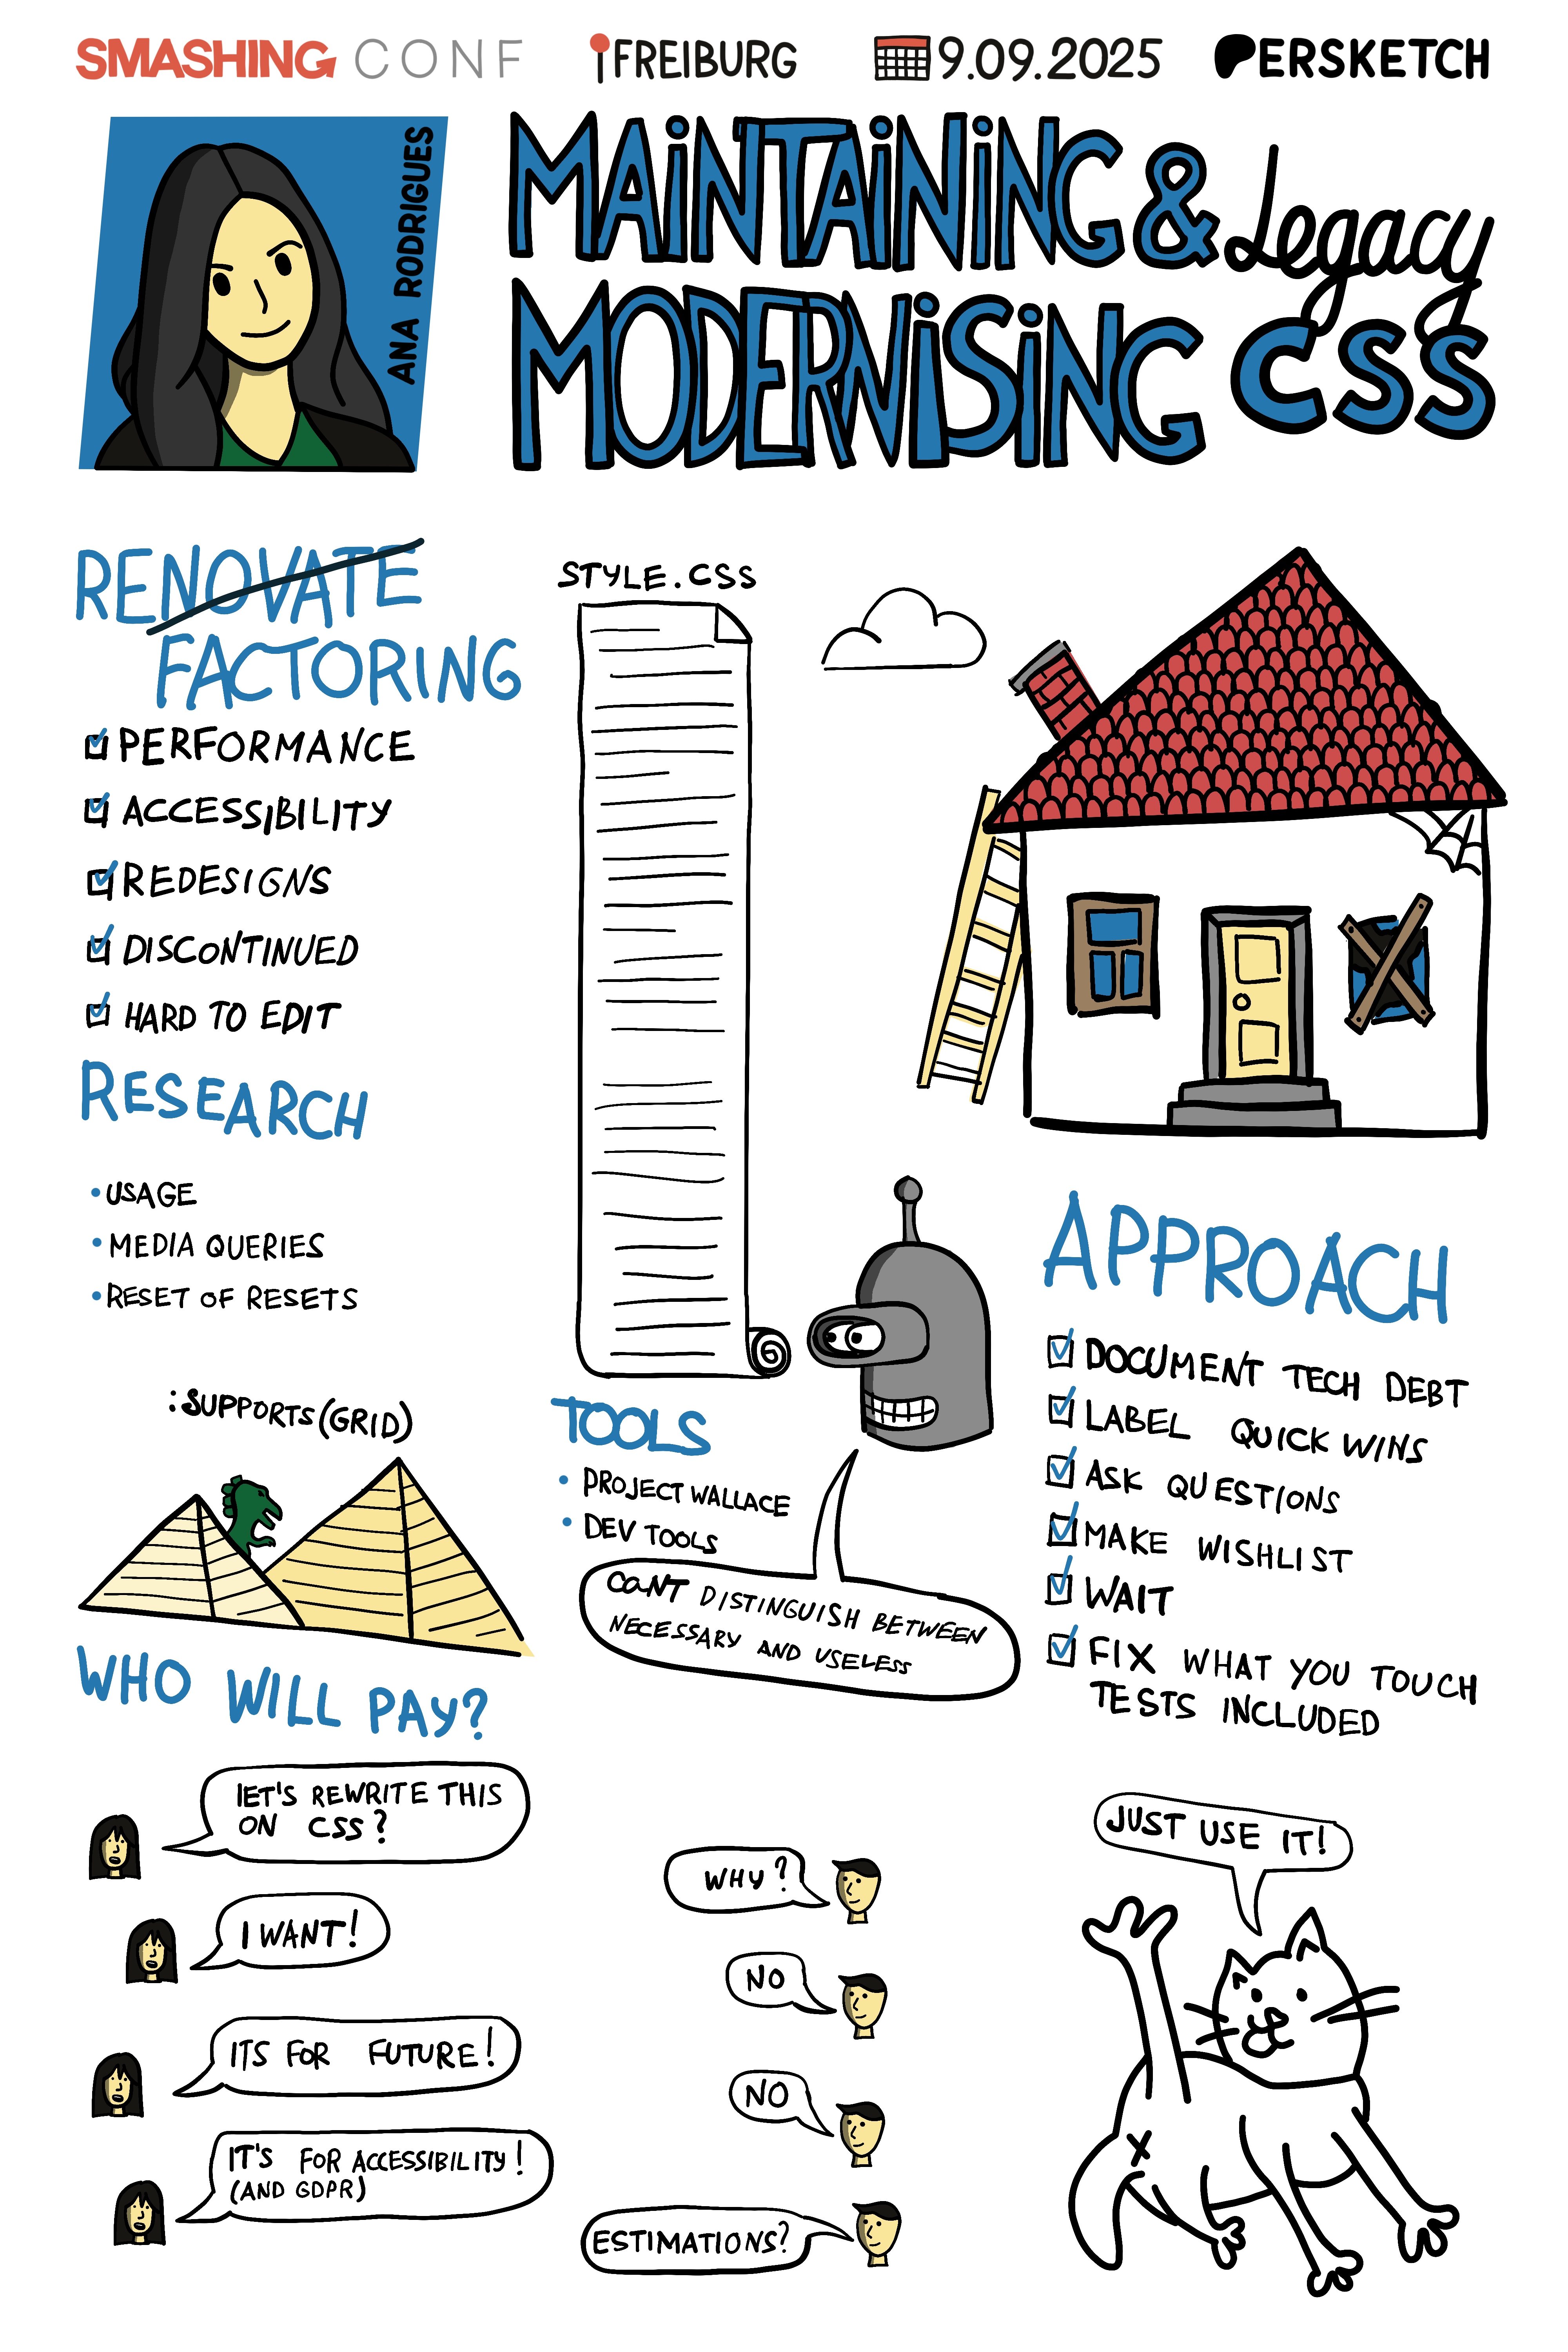 SMASHING CONF
FREIBURG
9.09.2025
PERSKETCH
ANA RODRIGUES
MAINTAINING & Legacy
MODERNISING CSS
RENOVATE
FACTORING
PERFORMANCE
ACCESSIBILITY
REDESIGNS
DISCONTINUED
HARD TO EDIT
RESEARCH
• USAGE
• MEDIA QUERIES
• RESET OF RESETS
:SUPPORTS(GRID)
STYLE.CSS
TOOLS
• PROJECT WALLACE
• DEV TOOLS
CANT DISTINGUISH BETWEEN
NECESSARY AND USELESS
APPROACH
DOCUMENT TECH DEBT
LABEL QUICK WINS
ASK QUESTIONS
MAKE WISHLIST
WAIT
FIX WHAT YOU TOUCH
TESTS INCLUDED
WHO WILL PAY?
LET'S REWRITE THIS
ON CSS?
WHY?
I WANT!
NO
ITS FOR FUTURE!
NO
IT'S FOR ACCESSIBILITY!
(AND GDPR)
ESTIMATIONS?
JUST USE IT!